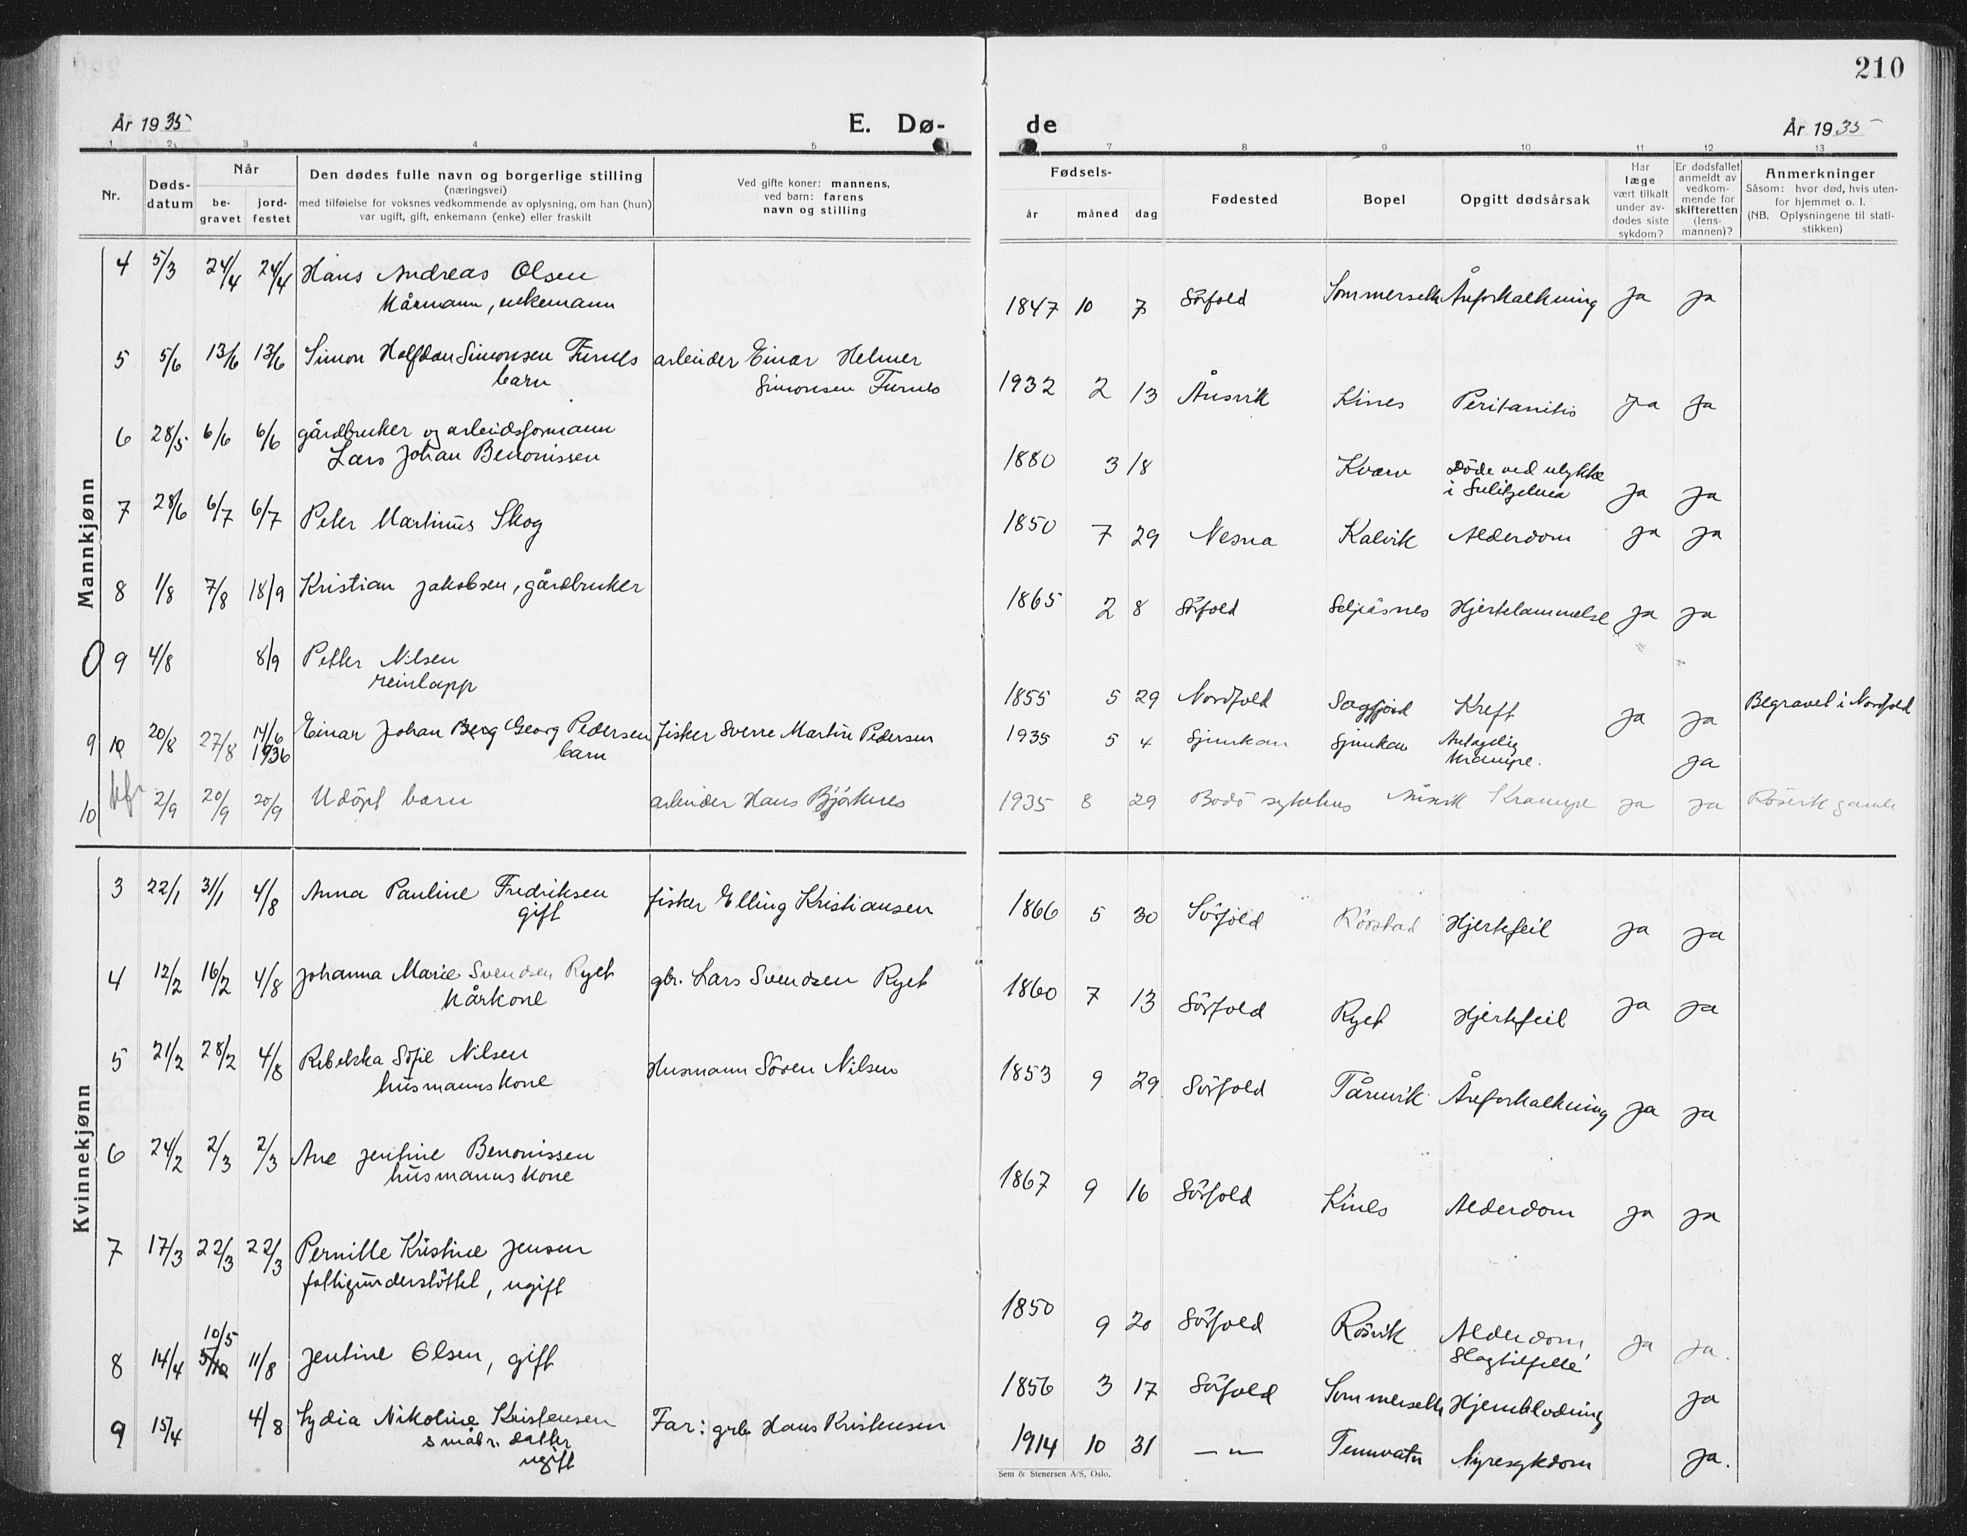 210
År 1935
E. Dø-
de
År 1935
1 2 3 4 5 7 8 9 10 11 12 13
Nr.
Døds-
datum
Når
be-
gravet
jord-
festet
Den dødes fulle navn og borgerlige stilling
(næringsvei)
med tilføielse for voksnes vedkommende av oplysning, om han (hun)
var ugift, gift, enkemann (enke) eller fraskilt
Ved gifte koner: mannens,
ved barn: farens
navn og stilling
Fødsels-
år måned dag
Fødested
Bopel
Opgitt dødsårsak
Har
læge
vært tilkalt
under av-
dødes siste
sykdom?
Er dødsfallet
anmeldt av
vedkom-
mende for
skifteretten
(lens-
mannen)?
Anmerkninger
Såsom: hvor død, hvis uten-
for hjemmet o. l.
(NB. Oplysningene til stati-
stikken)
Mannkjønn
4 5/3 24/4 24/4 Hans Andreas Olsen
kårmann, enkemann
1847 10 7 Sörfold Sommerseth Åreforkalkning ja ja
5 5/6 13/6 13/6 Simon Halfdan Simonsen Furnes arbeider Einar Helmer
barn Simonsen Furnes
1932 2 13 Ånsvik Kines Peritanitis ja ja
6 28/5 6/6 6/6 gårdbruker og arbeidsformann
Lars Johan Benonissen
1880 3 18 Kvarv Döde ved ulykke
i Sulitjelma ja ja
7 28/6 6/7 6/7 Peter Martinus Skog
1850 7 29 Nesna Kalvik Alderdom ja ja
8 1/8 7/8 18/9 Kristian Jakobsen, gårdbruker
1865 2 8 Sörfold Seljeåsnes Hjertelammelse ja ja
0 9 4/8 8/9 Petter Nilsen
reinlapp
1855 5 29 Nordfold Sagfjord Kreft ja ja Begravet i Nordfold
9 10 20/8 27/8 14/6 1936 Einar Johan Berg Georg Pedersen fisker Sverre Martin Pedersen
barn
1935 5 4 Sjunkan Sjunkan Antagelig
krampe. ja
10 2/9 20/9 20/9 Udöpt barn arbeider Hans Björknes
1935 8 29 Bodö sykehus Ånsvik Krampe ja ja Rösvik gamle
Kvinnekjønn
3 22/1 31/1 4/8 Anna Pauline Fredriksen fisker Elling Kristiansen
gift
1866 5 30 Sörfold Rörstad Hjertefeil ja ja
4 12/2 16/2 4/8 Johanna Marie Svendsen Ryet gbr. Lars Svendsen Ryet
kårkone
1860 7 13 Sörfold Ryet Hjertefeil ja ja
5 21/2 28/2 4/8 Rebekka Sofie Nilsen Husmann Sören Nilsen
husmannskone
1853 9 29 Sörfold Tårnvik Åreforkalkning ja ja
6 24/2 2/3 2/3 Ane Jentine Benonissen
husmannskone
1867 9 16 Sörfold Kines Alderdom ja ja
7 17/3 22/3 22/3 Pernille Kristine Jensen
fattigunderstöttet, ugift
1850 9 20 Sörfold Rösvik Alderdom,
Slagtilfelle ja ja.
8 14/4 10/5 5/10 11/8 Jentine Olsen, gift
1856 3 17 Sörfold Sommerseth Hjerneblödning ja
9 15/4 4/8 Lydia Nikoline Kristensen Far: grb. Hans Kristensen
småbr. datter
ugift
1914 10 31 —"— Tennvatn Nyresykdom ja.
Sem & Stenersen A/S, Oslo.